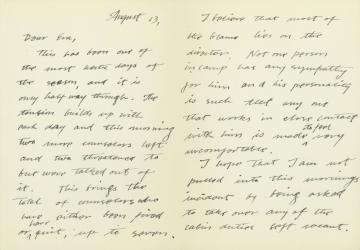 August 13,
Dear Eva,
This has been one of
the most hectic days of
the season, and it is
only half way through. The
tension builds up with
each day and this morning
two more counselors left
and two threatened to
but were talked out of
it. This brings the
total of counselors who
have either been fired
or have quit, up to seven.
I believe that most of
the blame lies on the
director. Not one person
in camp has any sympathy
for him and his personality
is such that any one
that works in close contact
with him is made to feel very
uncomfortable.
I hope that I am not
pulled into this mornings
incident by being asked
to take over any of the
cabin duties left vacant.